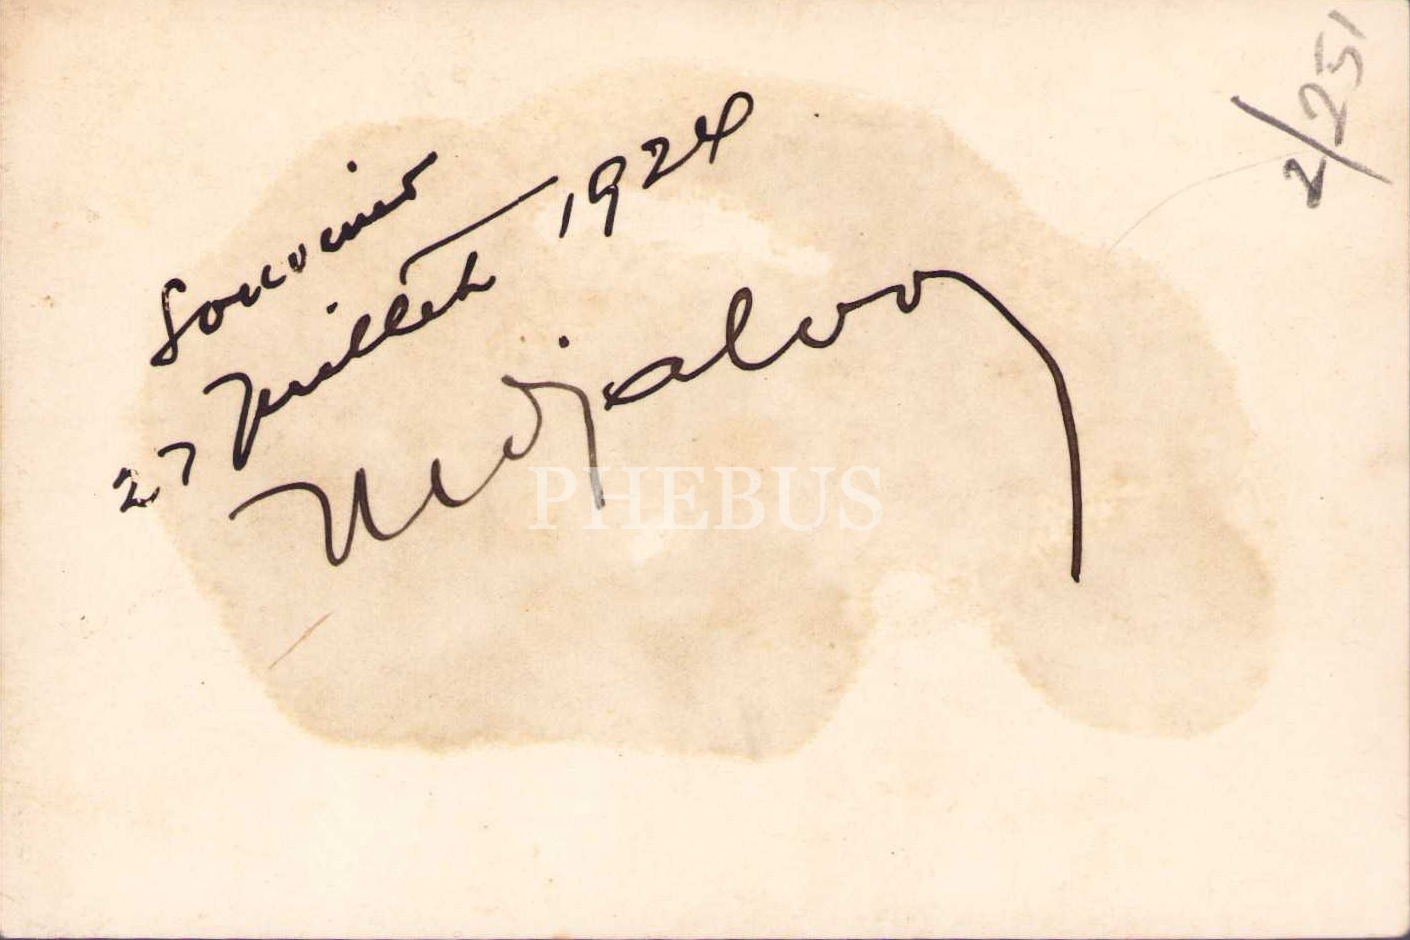 Souvenir
27 Juillet 1924
2/251
PHEBUS